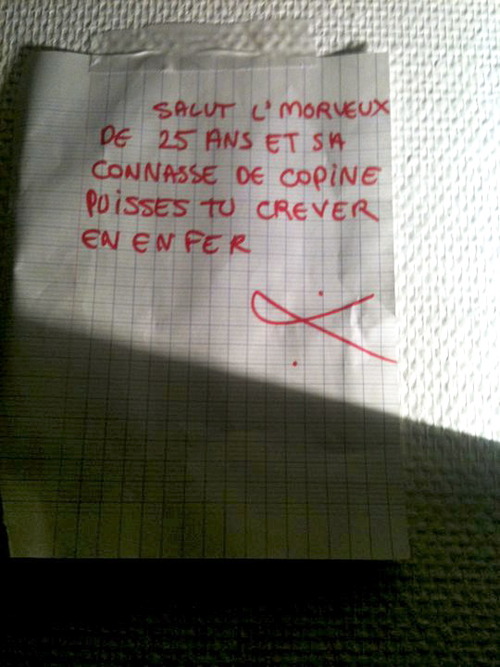 SALUT L'MORVEUX
DE 25 ANS ET SA
CONNASSE DE COPINE
PUISSES TU CREVER
EN ENFER